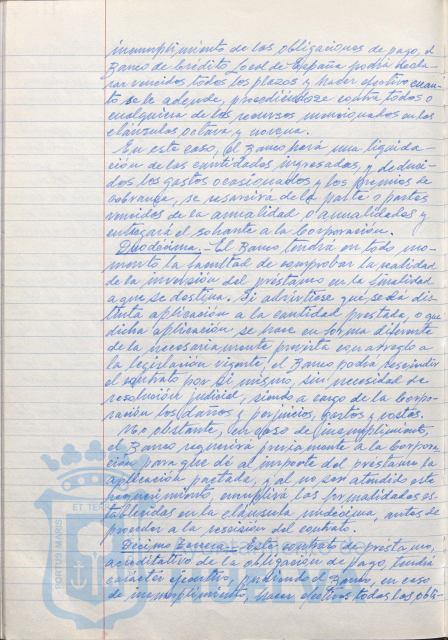 incumplimiento de las obligaciones de pago, el
Banco de Crédito Local de España podrá decla-
rar vencidos todos los plazos y hacer efectivo cuan-
to se le adeude, procediéndose contra todos o
cualquiera de los recursos mencionados en las
cláusulas octava y novena.
En este caso, el Banco hará una liquida-
ción de las cantidades ingresadas, y deduci-
dos los gastos ocasionados y los premios de
cobranza, se resarcirá de la parte o partes
vencidas de la anualidad o anualidades y
entregará el sobrante a la Corporación.
Duodécima.- El Banco tendrá en todo mo-
mento la facultad de comprobar la realidad
de la inversión del préstamo en la finalidad
a que se destina. Si advirtiese que se da dis-
tinta aplicación a la cantidad prestada, o que
dicha aplicación se hace en forma diferente
de la necesariamente prevista con arreglo a
la legislación vigente, el Banco podrá rescindir
el contrato por sí mismo, sin necesidad de
resolución judicial, siendo a cargo de la Corpo-
ración los daños y perjuicios, gastos y costas.
No obstante, en caso de incumplimiento,
el Banco requerirá previamente a la Corpora-
ción para que dé al importe del préstamo la
aplicación pactada, y al no ser atendido este
requerimiento, cumplirá las formalidades es-
tablecidas en la cláusula undécima, antes de
proceder a la rescisión del contrato.
Décimo tercera.- Este contrato de préstamo,
acreditativo de la obligación de pago, tendrá
carácter ejecutivo, pudiendo el Banco, en caso
de incumplimiento, hacer efectivas todas las obli-
PORTUS MARIS
ET TER